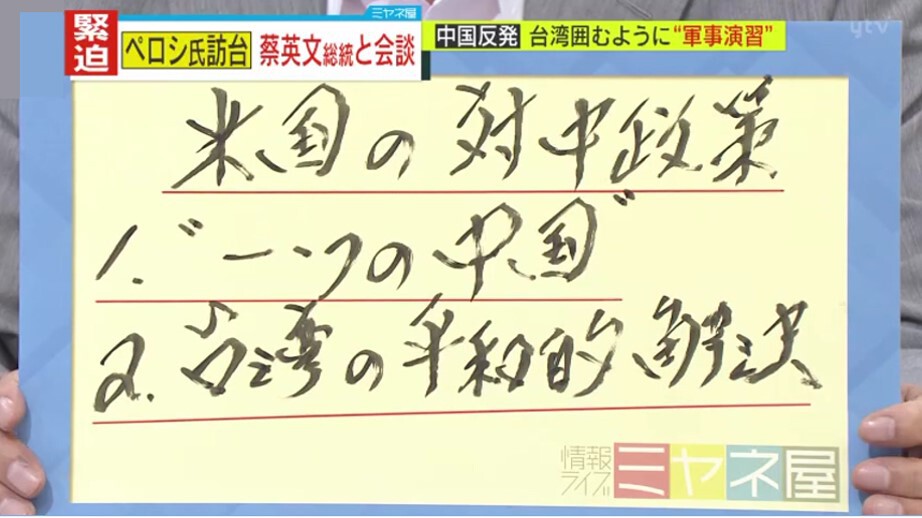 ミヤネ屋
緊迫 ペロシ氏訪台 蔡英文総統と会談
中国反発 台湾囲むように“軍事演習”
ytv
米国の対中政策
1.“一つの中国”
2.台湾の平和的解決
情報ライブ ミヤネ屋